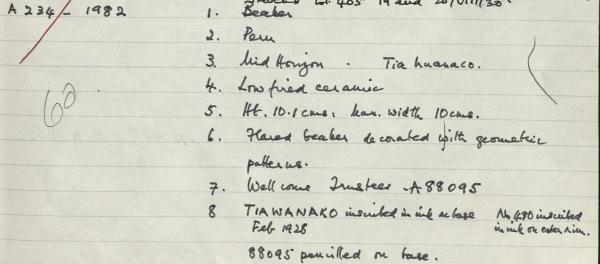 Lot 405 19 and 20/VIII/30
A 234 - 1982 1. Beaker
2. Peru
3. Mid Horizon. Tiahuanaco.
60
4. Low fired ceramic
5. Ht. 10.1 cms. Max. width 10 cms.
6. Flared beaker decorated with geometric
patterns.
7. Wellcome Trustees A88095
8 TIAWANAKO inscribed in ink on base No. 490 inscribed
Feb 1928 in ink on outer rim.
88095 pencilled on base.